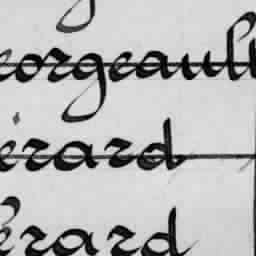 eorgeault
érard
érard